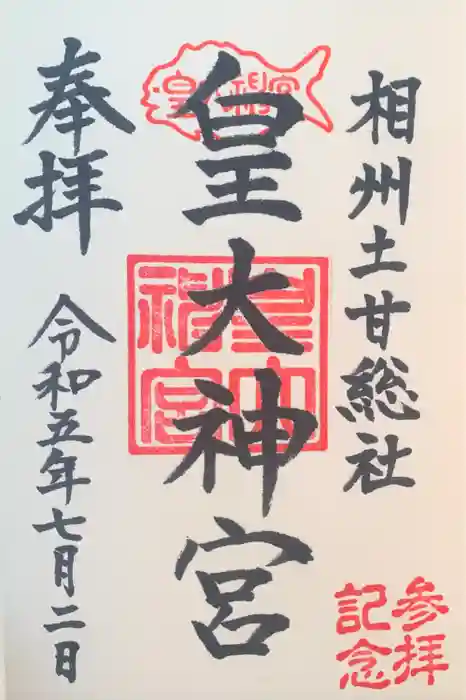 相州土甘総社
参拝
記念
皇大神宮
皇大神宮
皇大
神宮
奉拝
令和五年七月二日